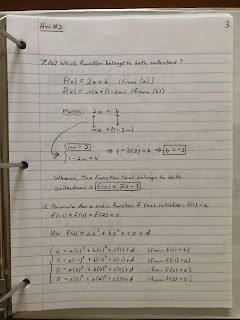 HW #2
3
7.(c) Which function belongs to both collections?
f(x) = 2x + b (from (a))
f(x) = mx + (1-2m) (from (b))
Match: 2x + b
mx + (1-2m)
m = 2
1-2m = b ⇒ 1-2(2) = b ⇒ b = -3
Whence, the function that belongs to both
collections is f(x) = 2x - 3
11. Formula for a cubic function f that satisfies: f(1) = 6,
f(-1) = f(0) = f(2) = 0.
Use f(x) = ax³ + bx² + cx + d
6 = a(1)³ + b(1)² + c(1) + d (from f(1) = 6)
0 = a(-1)³ + b(-1)² + c(-1) + d (from f(-1) = 0)
0 = a(0)³ + b(0)² + c(0) + d (from f(0) = 0)
0 = a(2)³ + b(2)² + c(2) + d (from f(2) = 0)